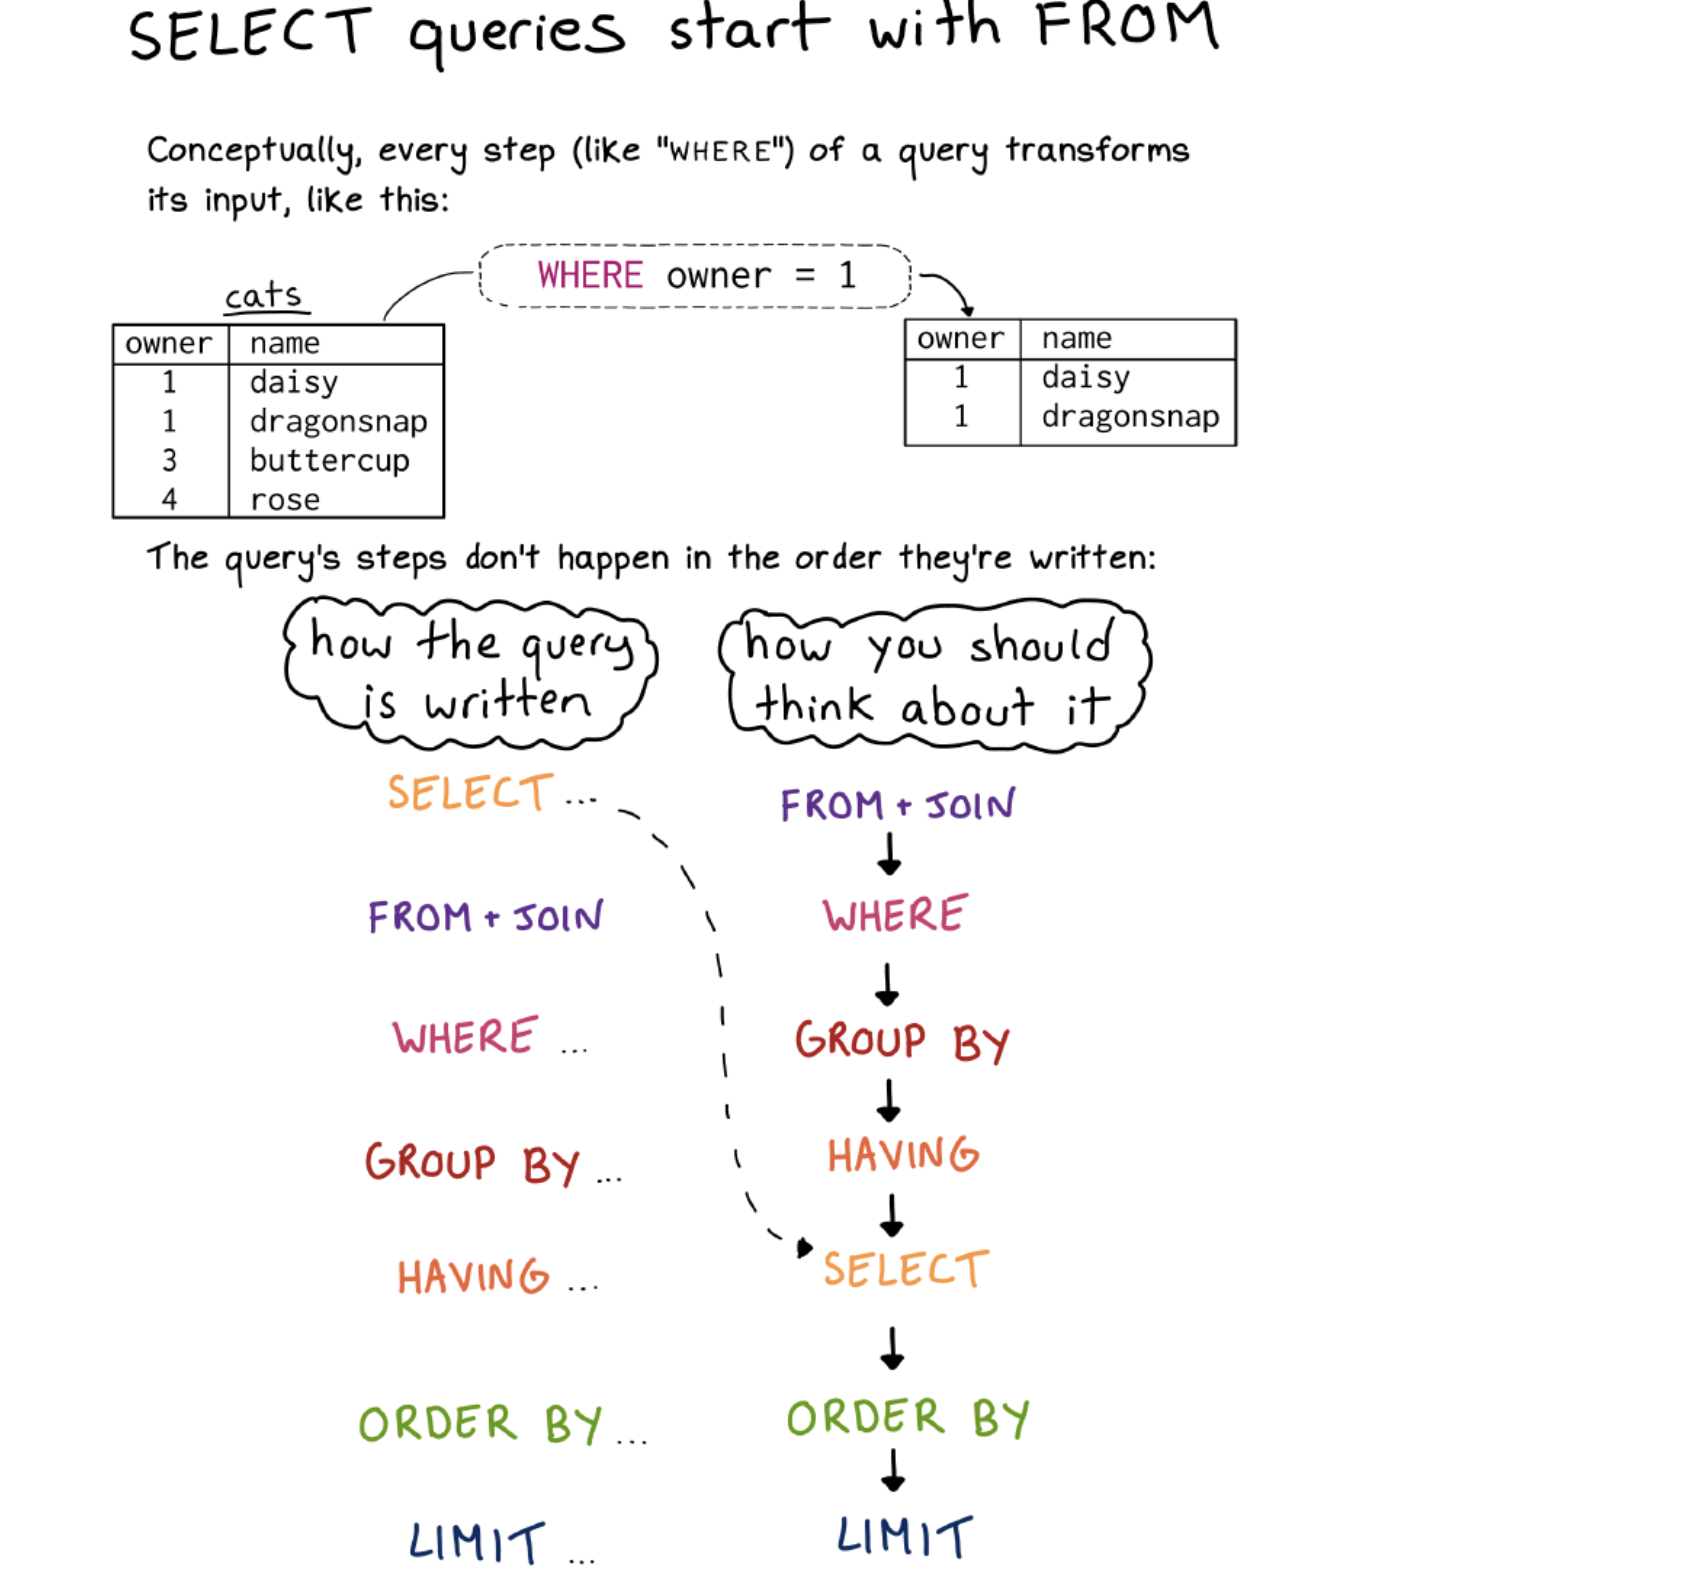 SELECT queries start with FROM
Conceptually, every step (like "WHERE") of a query transforms
its input, like this:
WHERE owner = 1
cats
owner name
1 daisy
1 dragonsnap
3 buttercup
4 rose
owner name
1 daisy
1 dragonsnap
The query's steps don't happen in the order they're written:
how the query
is written
SELECT ...
FROM + JOIN
WHERE ...
GROUP BY ...
HAVING ...
ORDER BY ...
LIMIT ...
how you should
think about it
FROM + JOIN
WHERE
GROUP BY
HAVING
SELECT
ORDER BY
LIMIT